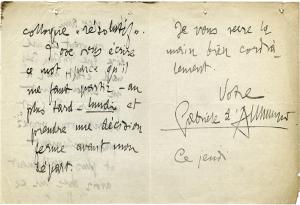 colloque "résolutif".
J'ose vous écrire
ce mot parce qu'il
me faut partir au
plus tard lundi et
prendre une décision
ferme avant mon
départ.
Je vous serre la
main bien cordia-
lement.
Votre
Gabriele d'Annunzio
Ce jeudi